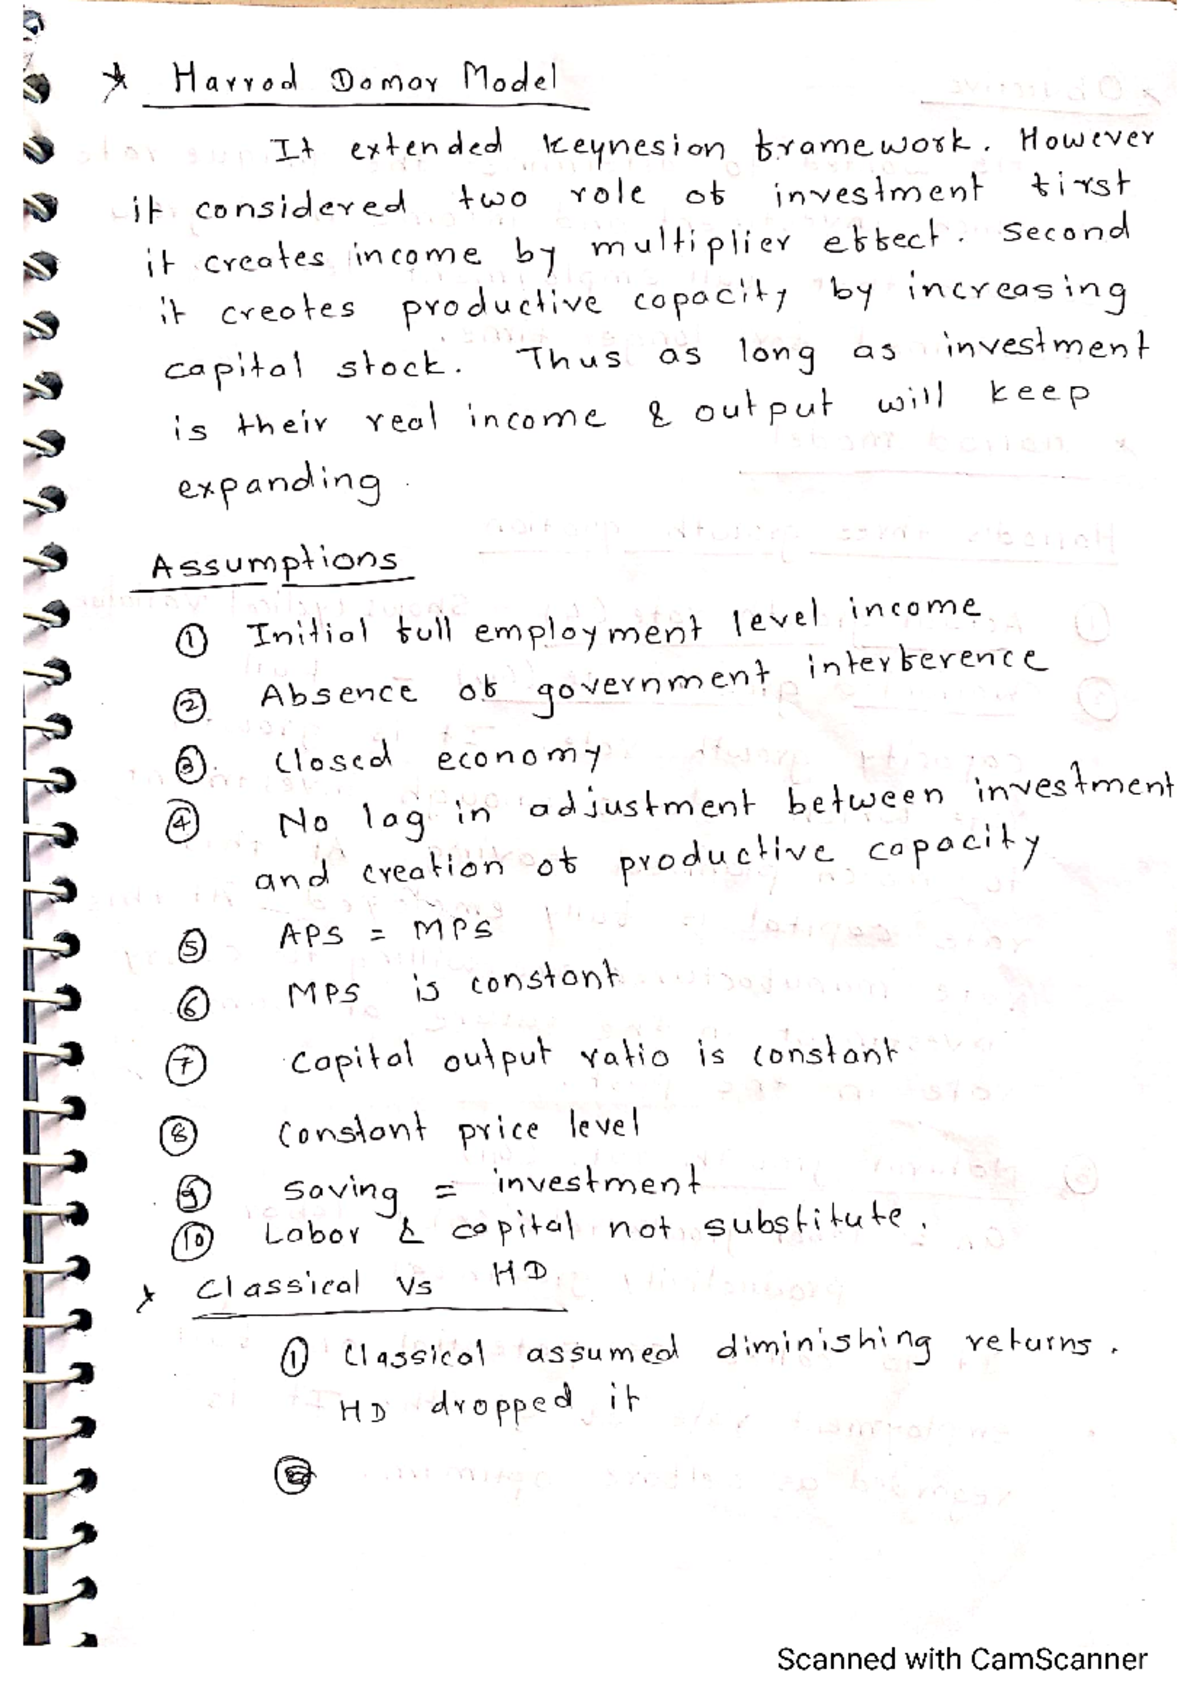 * Harrod Domar Model
It extended keynesion framework. However
it considered two role of investment first
it creates income by multiplier effect. Second
it creates productive capacity by increasing
capital stock. Thus as long as investment
is their real income & output will keep
expanding.
Assumptions
① Initial full employment level income
②. Absence of government interference
③. Closed economy
④ No lag in adjustment between investment
and creation of productive capacity
⑤ APS = MPS
⑥ MPS is constant
⑦ Capital output ratio is constant
⑧ Constant price level
⑨ Saving = investment
⑩ Labor & capital not substitute.
* Classical Vs HD
① Classical assumed diminishing returns.
HD dropped it
Scanned with CamScanner